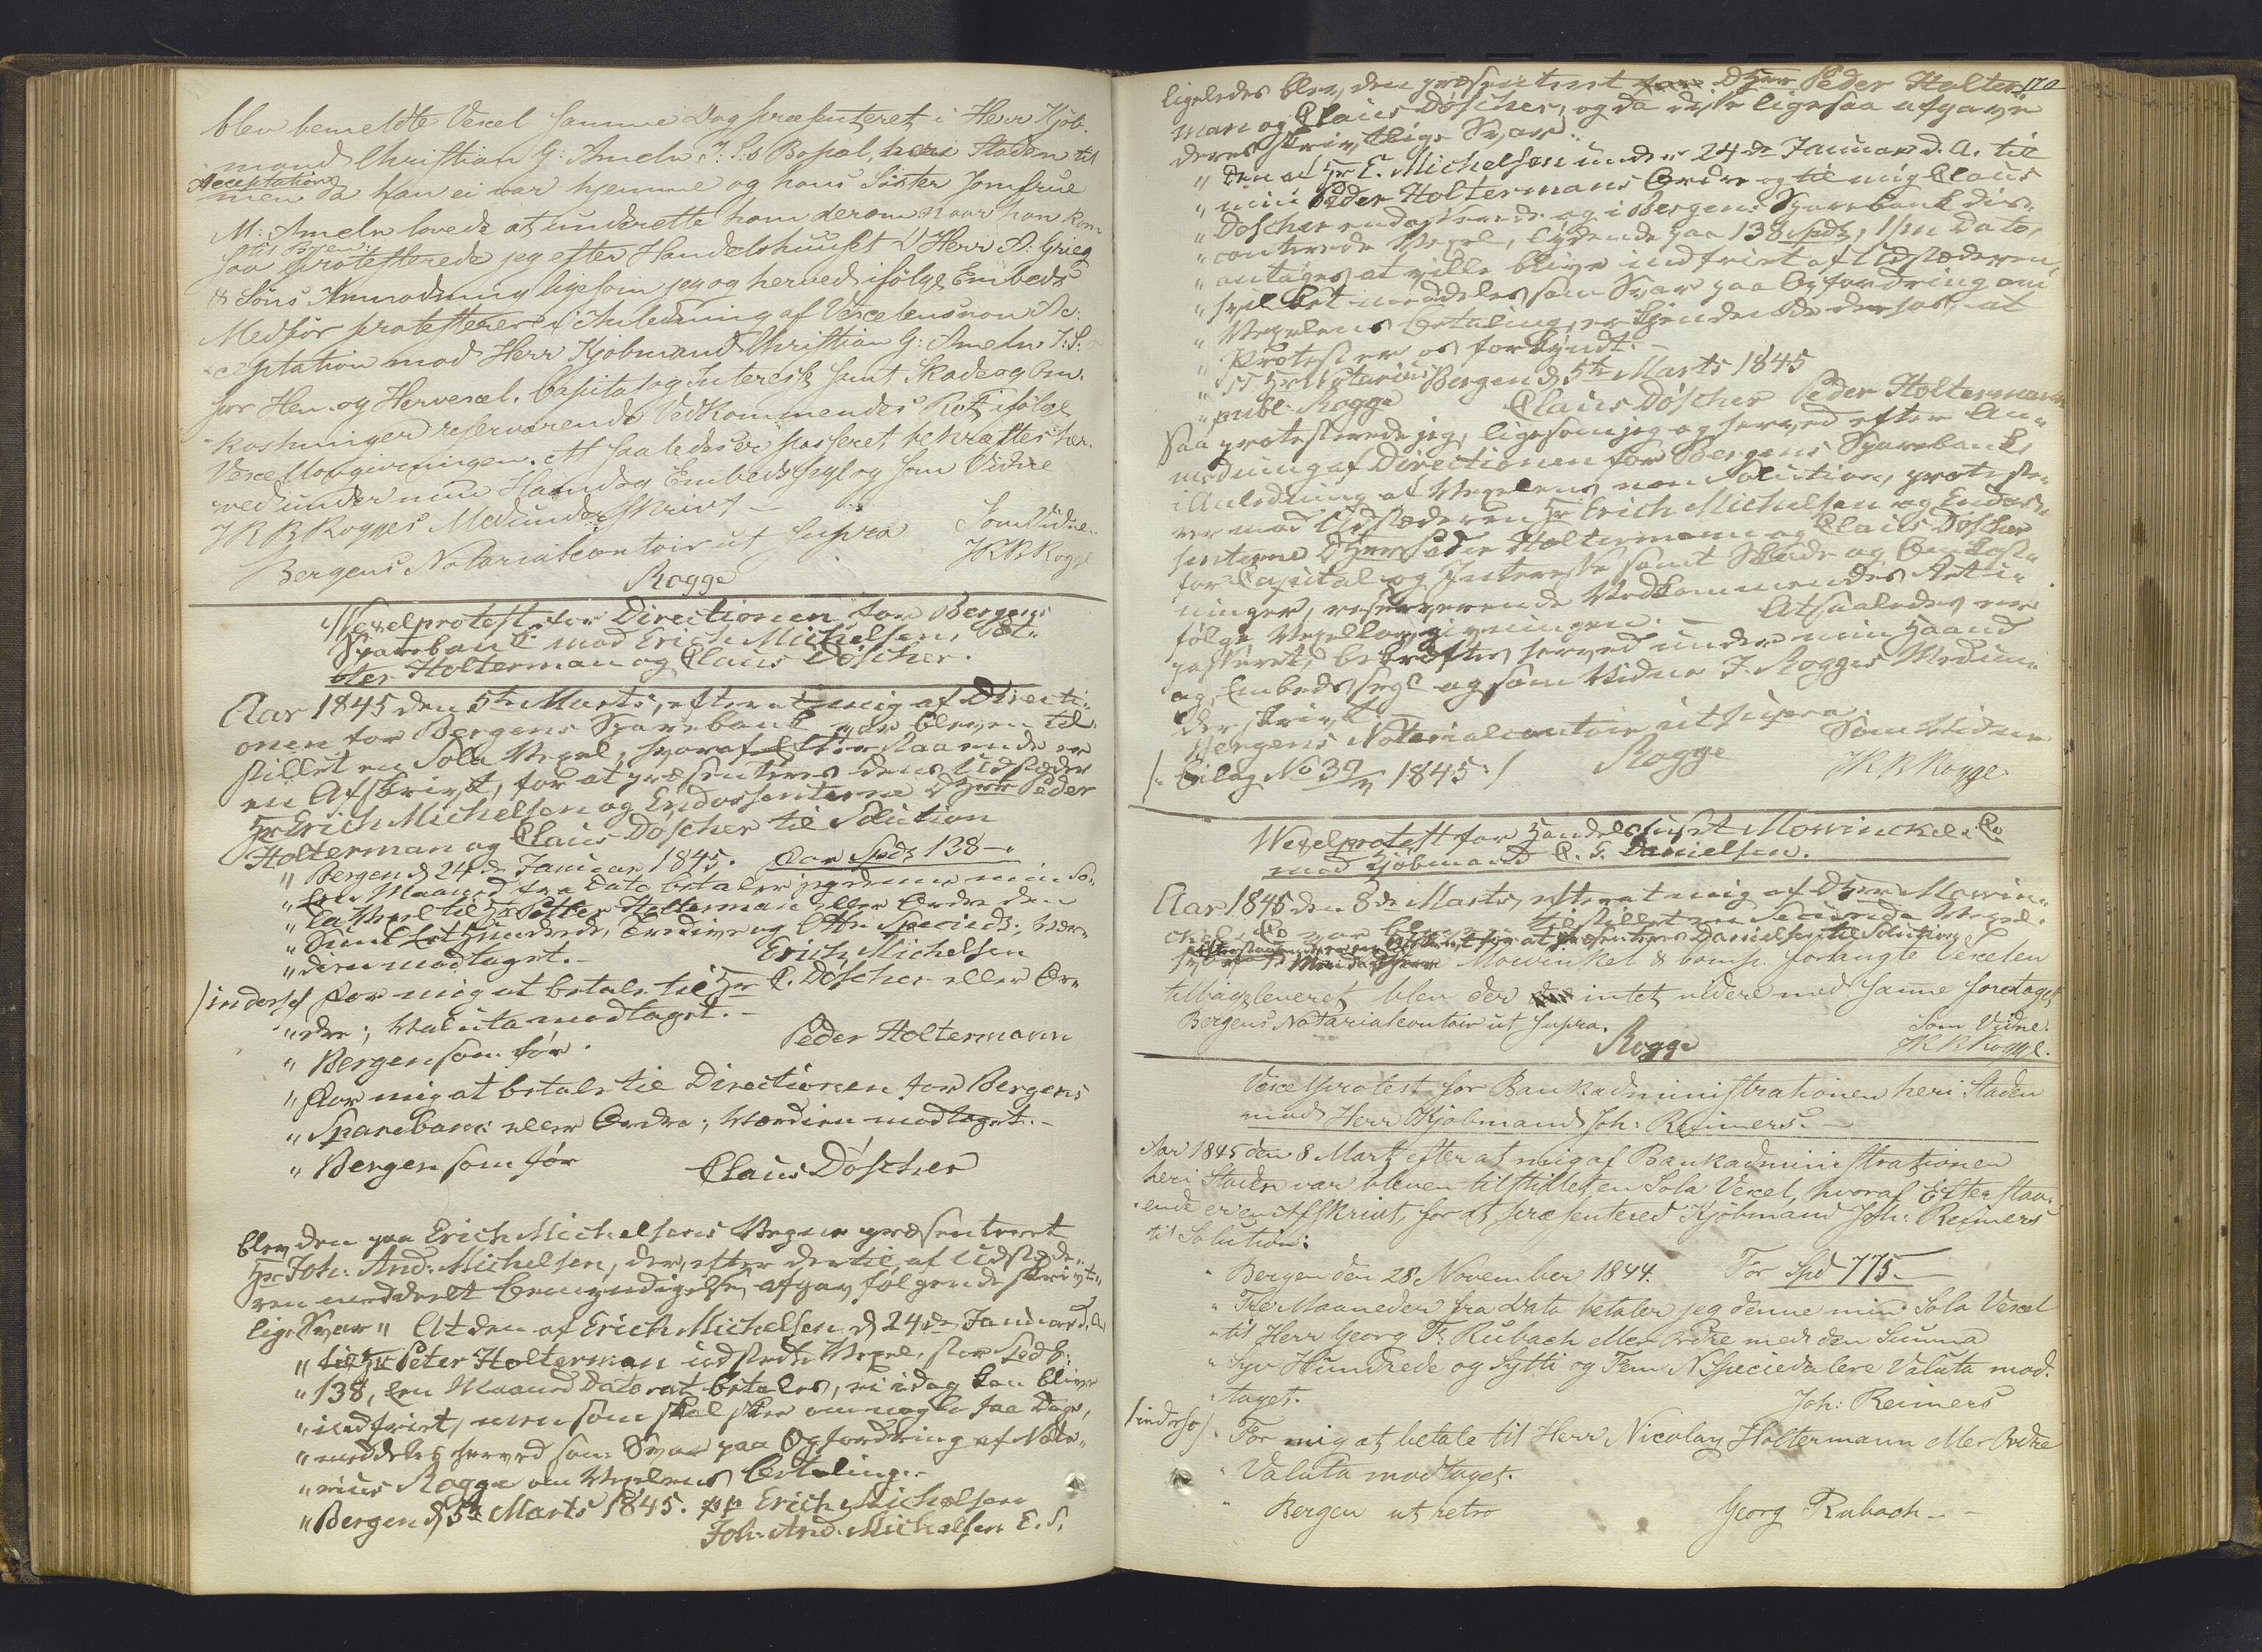 blev bemeldte Vexel samme Dag præsenteret i Herr Kjøb-
mand Christian G: Ameln J: S:s Bopæl, heri Staden til
Acceptation
men da han ei var hjemme og hans Söster Jomfrue
M: Ameln lovede at underette ham derom naar han kom
til Byen:
saa protesterede jeg efter Handelshuuset D'Herr A: Grieg
& Söns Anmodning ligesom jeg og herved ifölge Embeds
Medför protesterer i Anledning af Vexelens non Ac-
ceptation mod Herr Kjøbmand Christian G: Ameln J: S:
for Hen- og Hervexel, Capital og Interesse samt Skade og Om-
kostninger reserverende Vedkommendes Ret ifölge
Vexellovgivningen. At saaledes er passeret bekræftes her-
ved under min Haand og Embedssegl og som Vidne
J K B Rogges Medunderskrivt –
Bergens Notarialcontoir ut supra Som Vidne
Rogge J K B Rogge
Vexelprotest for Directionen for Bergens
Sparebank mod Erich Michelsen, Pet-
ter Holterman og Claus Döscher.
Aar 1845 den 5te Marts, efterat mig af Directi-
onen for Bergens Sparebank var bleven til-
stillet en Sola Vexel, hvoraf Efterstaaende er
en Afskrivt, for at præsenteres dens Udsteder
Hr Erich Michelsen og Endossenterne DHerr Peder
Holterman og Claus Döscher til Solution
" Bergen d 24de Januar 1845. For Spd 138 –
" Een Maaned fra Dato betaler jeg denne min So-
" la Vexel til Hr Petter Holterman eller Ordre den
" Summa Et Hundrede, Tredive og Otte Speciedr, Vær-
" dien modtaget. –
Erich Michelsen
/indorso/ For mig at betale til Hr C. Döscher eller Or-
" dre; Valuta modtaget. –
" Bergen som før. Peder Holtermann
" For mig at betale til Directionen for Bergens
" Sparebank eller Ordre; Værdien modtaget. –
" Bergen som før Claus Döscher
blev den paa Erich Michelsens Vegne præsenteret
Hr Joh: And: Michelsen, der, efter dertil af Udstede-
ren meddeelt Bemyndigelse, afgav følgende skrivt-
lige Svar " At den af Erich Michelsen d 24de Januar d. A.
" til Hr Peter Holterman udstedte Vexel, stor Spd
" 138, Een Maaned Dato at betales, ei idag kan blive
" indfriet, men som skal skee om nogle faa Dage,
" meddeles herved som Svar paa Opfordring af Nota-
" rius Rogge om Vexelens Betaling. –
" Bergen d 5te Marts 1845. pp Erich Michelsen
Joh: And: Michelsen E. S.
170
ligeledes blev den præsenteret DHerr Peder Holter-
man og Claus Döscher, og da disse ligesaa afgave
deres skrivtlige Svar:
" Den af Hr E. Michelsen under 24de Januar d. A. til
" min Peder Holtermans Ordre og til mig Claus
" Döscher endosserede og i Bergens Sparebank dis-
" conterede Vexel, lydende paa 138 Spd, 1/m Dato,
" antages at ville blive indfriet af Udstederen,
" hvilket meddeles som Svar paa Opfordring om
" Vexelens Betaling, erkjendende derhos, at
" Protest er os forkyndt. –
" S T Hr Notarius Bergen d 5te Marts 1845
" publ: Rogge Claus Döscher Peder Holtermann
Saa protesterede jeg, ligesom jeg og herved efter An-
modning af Directionen for Bergens Sparebank,
i Anledning af Vexelens non Solution, proteste-
rer mod Udstederen Hr Erich Michelsen og Endos-
senterne DHerr Peder Holtermann og Claus Döscher
for Capital og Interesse samt Skade og Omkost-
ninger, reserverende Vedkommendes Ret i-
følge Vexellovgivningen. – At saaledes er
passeret, bekræftes herved under min Haand
og Embedssegl og som Vidne J. Rogges Medun-
derskrivt.
Bergens Notarialcontoir ut supra.
Som Vidne
/: Bilag No 37 1845 :/ Rogge J K B Rogge
Vexelprotest for Handelshuset Mowinckel & Co
mod Kjøbmand C. F. Danielsen.
Aar 1845 den 8de Marts, efterat mig af DHerr Mowin-
ckel & Co var bleven tilstillet en Secunda Vexel,
hvoraf Efterstaaende er en Afskrivt for at præsenteres Danielsen til Solution
Mowinkel & Comp. forlangte Vexelen
tilbageleveret blev der intet videre med samme foretaget
Bergens Notarialcontoir ut supra. Som Vidne.
Rogge J K B Rogge.
Vexelprotest for Bankadministrationen heri Staden
mod Herr Kjøbmand Joh: Reimers. –
Aar 1845 den 8 Marts efter at mig af Bankadministrationen
heri Staden var bleven tilstillet en Sola Vexel, hvoraf Efterstaa-
ende er en Afskrivt, for at præsenteres Kjøbmand Joh: Reimers
til Solution:
" Bergen den 28 November 1844. For Spd 775 –
" Tre Maaneder fra Dato betaler jeg denne min Sola Vexel
" til Herr Georg F: Rubach eller Ordre med den Summa
" Syv Hundrede og Sytti og Fem N Speciedalere Valuta mod-
" taget. Joh: Reimers
/indorso/ For mig at betale til Herr Nicolay Holtermann eller Ordre
" Valuta modtaget.
" Bergen ut retro Georg Rubach – –